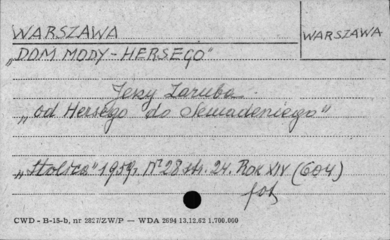 WARSZAWA
WARSZAWA
„DOM MODY - HERSEGO"
Jerzy Zaruba
„od Hersego do Semadeniego"
„Stolica" 1959r. Nr 28 str. 24. ROK XIV (604)
fot
CWD - B-15-b, nr 2827/ZW/P — WDA 2694 13,12,62 1,700,000